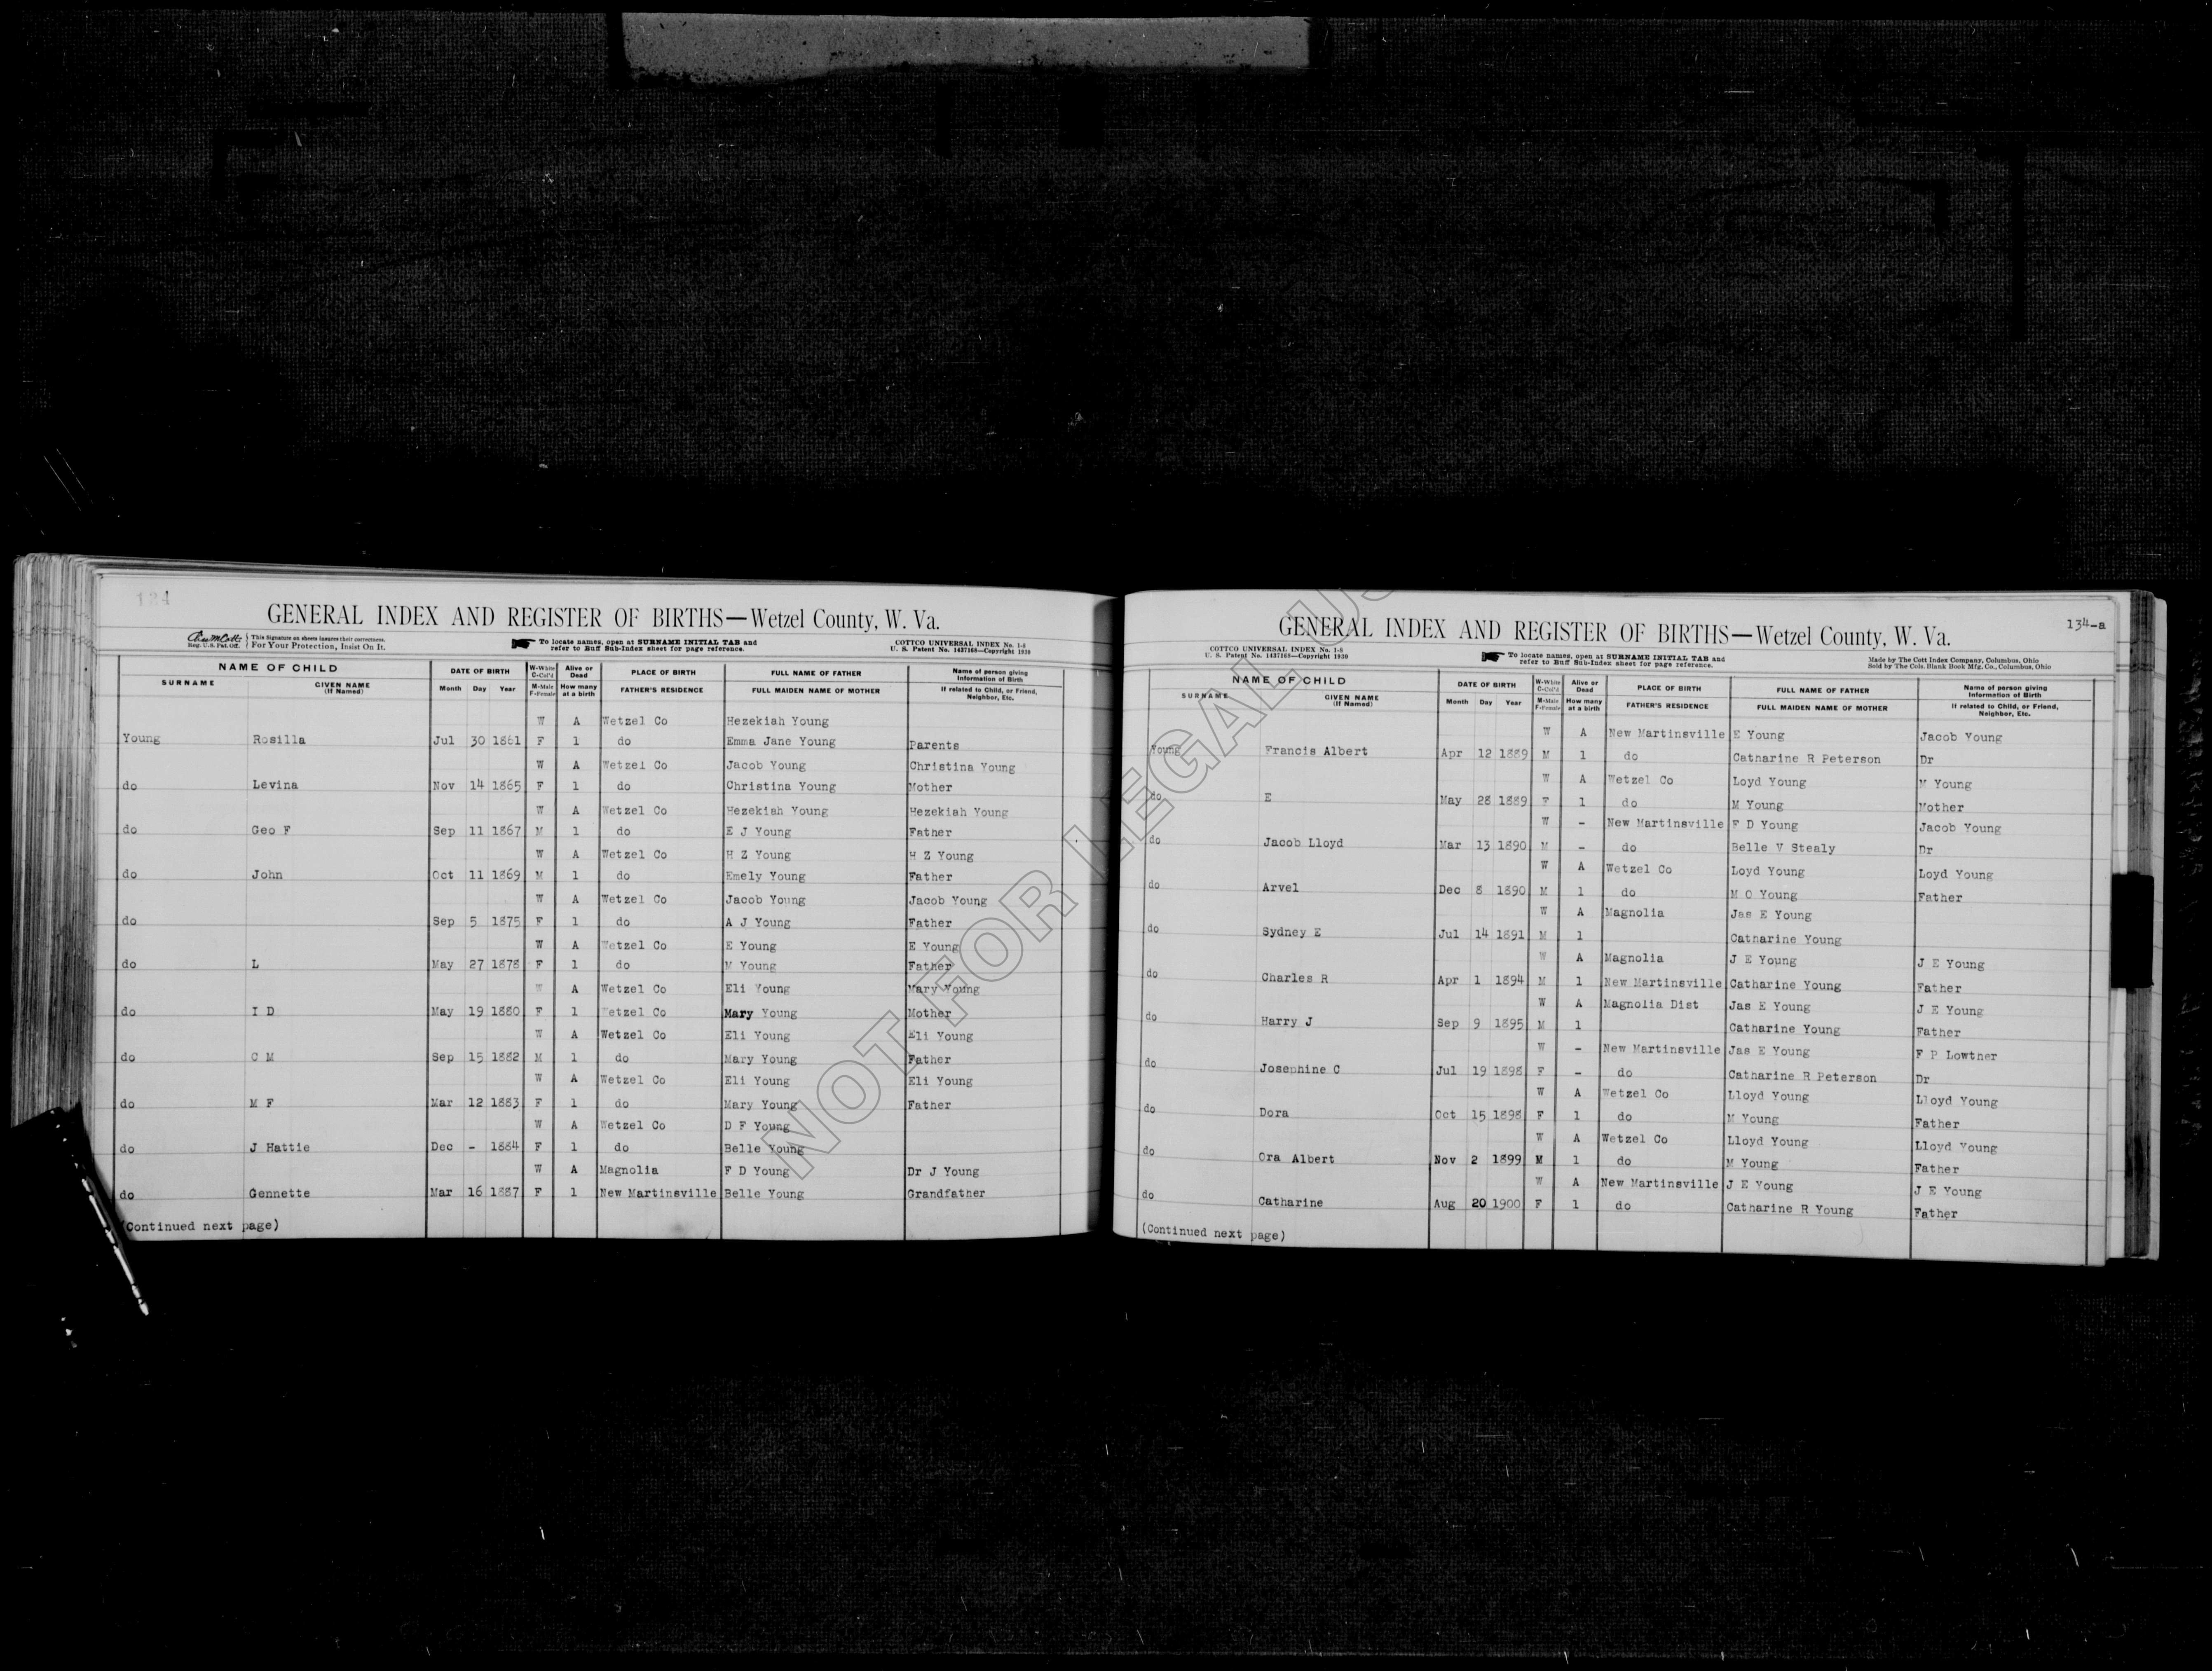 134
GENERAL INDEX AND REGISTER OF BIRTHS—Wetzel County, W. Va.
Reg. U.S. Pat. Off. { This Signature on sheets insures their correctness. For Your Protection, Insist On It.
To locate names, open at SURNAME INITIAL TAB and refer to Buff Sub-Index sheet for page reference.
COTTCO UNIVERSAL INDEX No. 1-8
U. S. Patent No. 1437168—Copyright 1930
NAME OF CHILD DATE OF BIRTH W-White C-Col'd Alive or Dead PLACE OF BIRTH FULL NAME OF FATHER Name of person giving Information of Birth
SURNAME GIVEN NAME (If Named) Month Day Year M-Male F-Female How many at a birth FATHER'S RESIDENCE FULL MAIDEN NAME OF MOTHER If related to Child, or Friend, Neighbor, Etc.
W A Wetzel Co Hezekiah Young
Young Rosilla Jul 30 1861 F 1 do Emma Jane Young Parents
W A Wetzel Co Jacob Young Christina Young
do Levina Nov 14 1865 F 1 do Christina Young Mother
W A Wetzel Co Hezekiah Young Hezekiah Young
do Geo F Sep 11 1867 M 1 do E J Young Father
W A Wetzel Co H Z Young H Z Young
do John Oct 11 1869 M 1 do Emely Young Father
W A Wetzel Co Jacob Young Jacob Young
do Sep 5 1875 F 1 do A J Young Father
W A Wetzel Co E Young E Young
do L May 27 1878 F 1 do M Young Father
W A Wetzel Co Eli Young Mary Young
do I D May 19 1880 F 1 Wetzel Co Mary Young Mother
W A Wetzel Co Eli Young Eli Young
do C M Sep 15 1882 M 1 do Mary Young Father
W A Wetzel Co Eli Young Eli Young
do M F Mar 12 1883 F 1 do Mary Young Father
W A Wetzel Co D F Young
do J Hattie Dec - 1884 F 1 do Belle Young
W A Magnolia F D Young Dr J Young
do Gennette Mar 16 1887 F 1 New Martinsville Belle Young Grandfather
(Continued next page)
134-a
GENERAL INDEX AND REGISTER OF BIRTHS—Wetzel County, W. Va.
COTTCO UNIVERSAL INDEX No. 1-8
U. S. Patent No. 1437168—Copyright 1930
To locate names, open at SURNAME INITIAL TAB and refer to Buff Sub-Index sheet for page reference.
Made by The Cott Index Company, Columbus, Ohio
Sold by The Cols. Blank Book Mfg. Co., Columbus, Ohio
NAME OF CHILD DATE OF BIRTH W-White C-Col'd Alive or Dead PLACE OF BIRTH FULL NAME OF FATHER Name of person giving Information of Birth
SURNAME GIVEN NAME (If Named) Month Day Year M-Male F-Female How many at a birth FATHER'S RESIDENCE FULL MAIDEN NAME OF MOTHER If related to Child, or Friend, Neighbor, Etc.
W A New Martinsville E Young Jacob Young
Young Francis Albert Apr 12 1889 M 1 do Catharine R Peterson Dr
W A Wetzel Co Loyd Young M Young
do E May 28 1889 F 1 do M Young Mother
W - New Martinsville F D Young Jacob Young
do Jacob Lloyd Mar 13 1890 M - do Belle V Stealy Dr
W A Wetzel Co Loyd Young Loyd Young
do Arvel Dec 8 1890 M 1 do M C Young Father
W A Magnolia Jas E Young
do Sydney E Jul 14 1891 M 1 Catharine Young
W A Magnolia J E Young J E Young
do Charles R Apr 1 1894 M 1 New Martinsville Catharine Young Father
W A Magnolia Dist Jas E Young J E Young
do Harry J Sep 9 1895 M 1 Catharine Young Father
W - New Martinsville Jas E Young F P Lowtner
do Josephine C Jul 19 1898 F - do Catharine R Peterson Dr
W A Wetzel Co Lloyd Young Lloyd Young
do Dora Oct 15 1898 F 1 do M Young Father
W A Wetzel Co Lloyd Young Lloyd Young
do Ora Albert Nov 2 1899 M 1 do M Young Father
W A New Martinsville J E Young J E Young
do Catharine Aug 20 1900 F 1 do Catharine R Young Father
(Continued next page)
NOT FOR LEGAL US